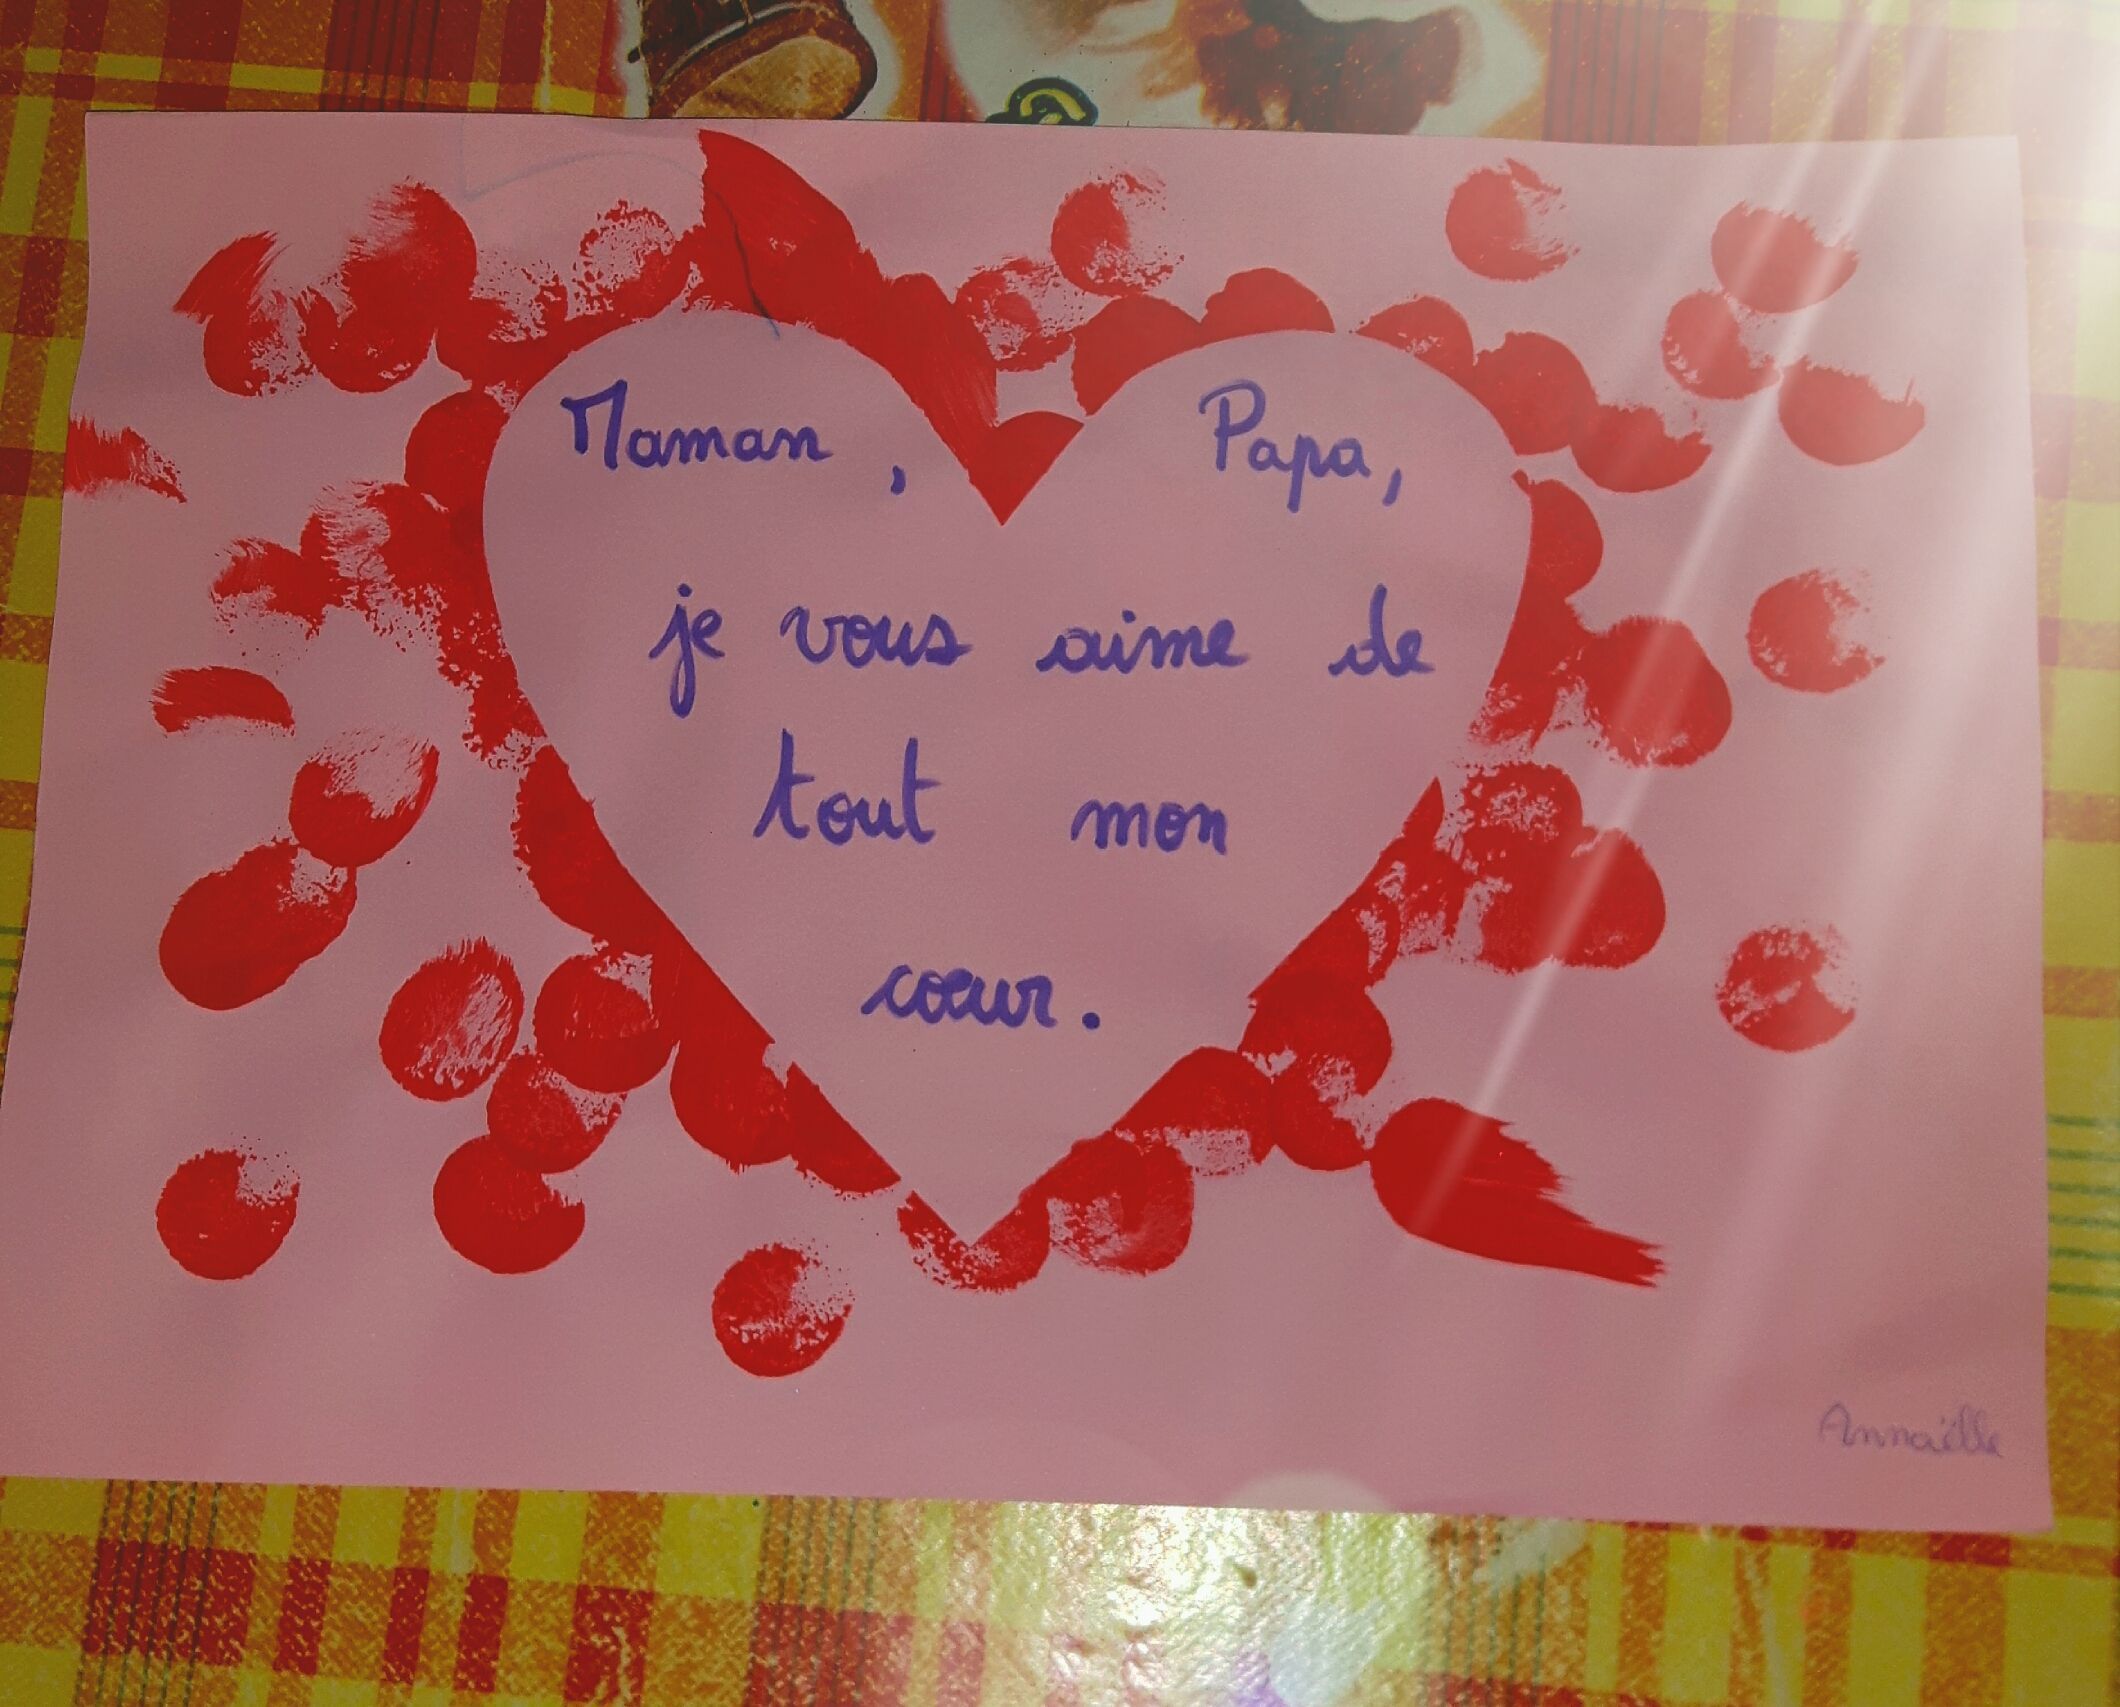 Maman, Papa,
je vous aime de
tout mon
cœur.
Annaëlle